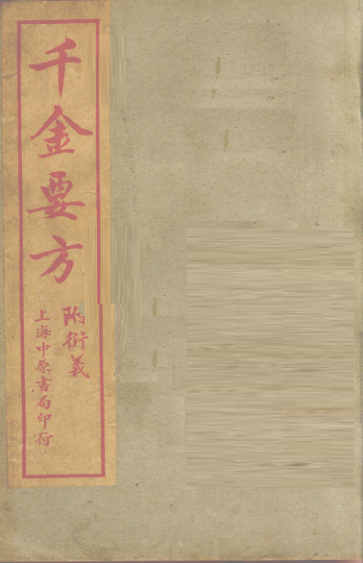 千金要方
附衍義
上海中原書局印行